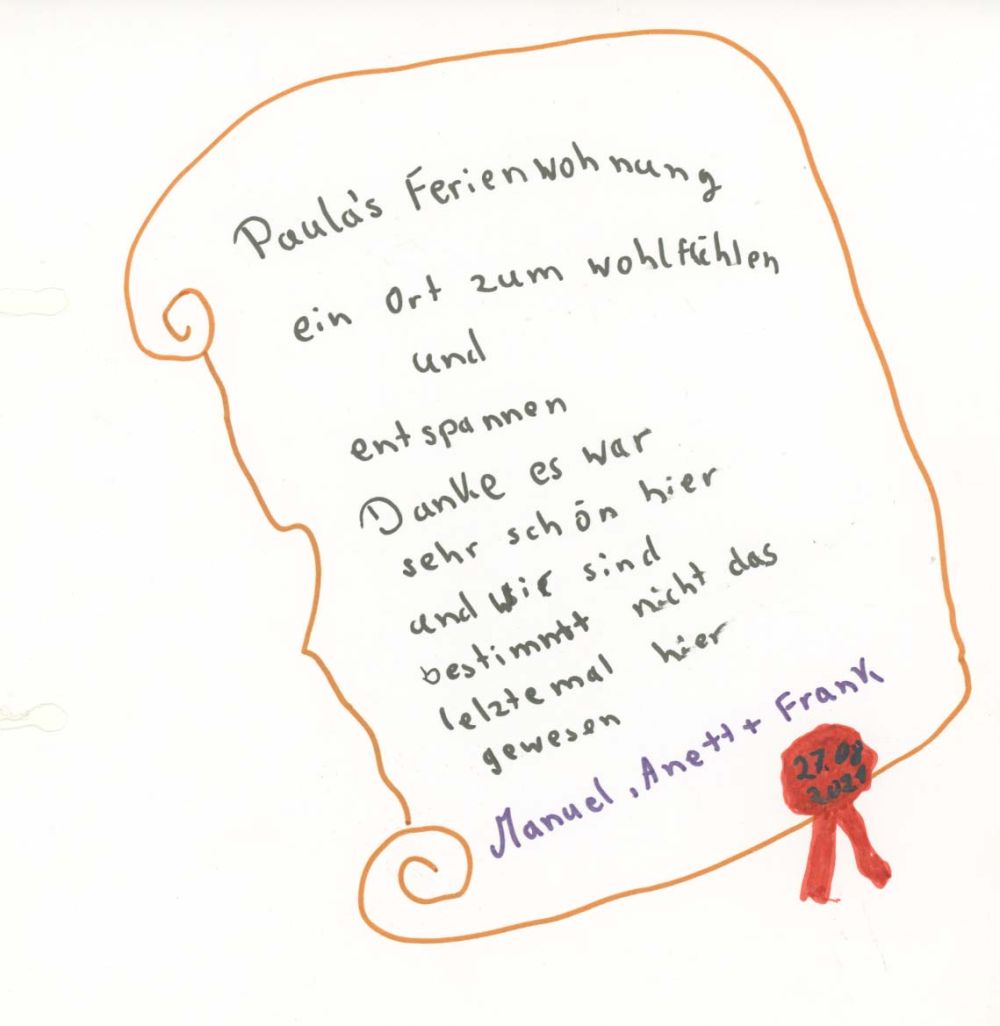 Paula's Ferienwohnung
ein Ort zum wohlfühlen
und
entspannen
Danke es war
sehr schön hier
und wir sind
bestimmt nicht das
letztemal hier
gewesen
Manuel, Anett + Frank
27.08
2021